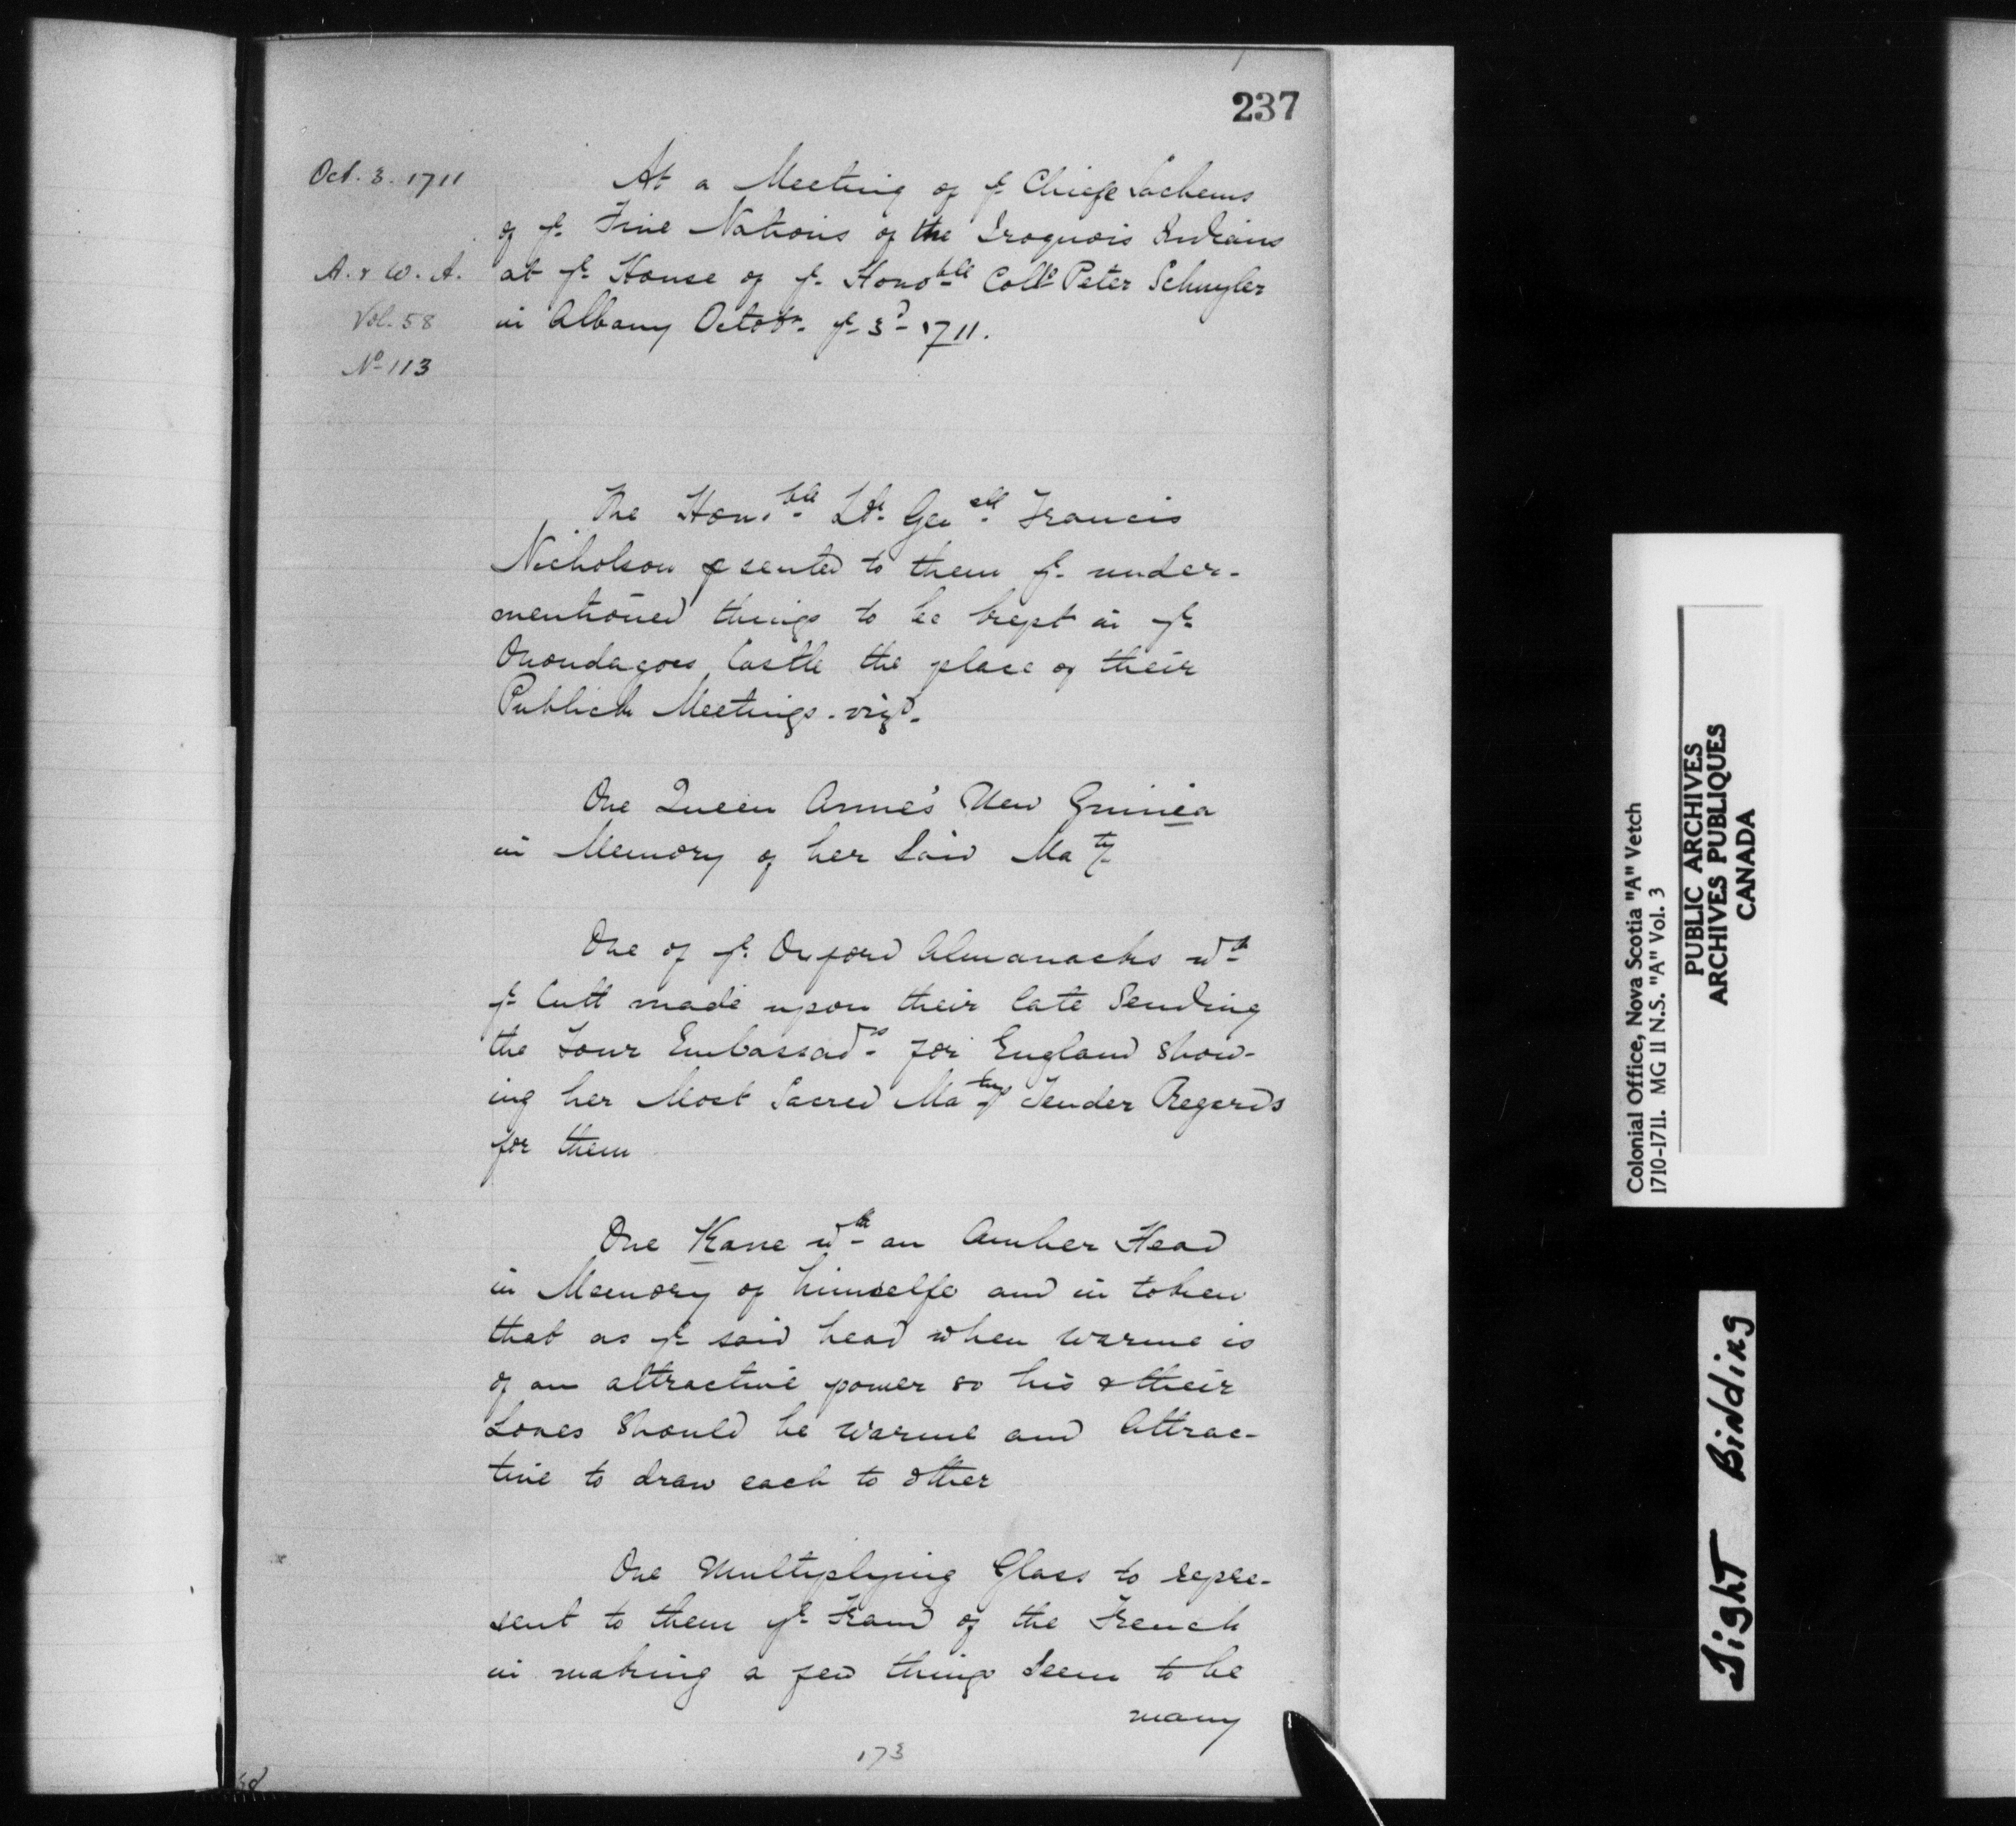 237
Oct. 3. 1711
A. & W. I.
Vol. 58
No 113
At a Meeting of ye Chiefe Sachems
of ye Five Nations of the Iroquois Indians
at ye House of ye Honoble Collo Peter Schuyler
in Albany Octobr ye 3d 1711.
The Honoble Lt Genll Francis
Nicholson psented to them ye under-
mentioned things to be kept in ye
Onondagoes Castle the place of their
Publick Meetings. vizt.
One Queen Anne's New Guinea
in Memory of her Said Maty
One of ye Oxford Almanacks wth
ye Cutt made upon their late Sending
the Four Embassadrs for England Show-
ing her Most Sacred Matys Tender Regards
for them
One Kane wth an Amber Head
in Memory of himselfe and in token
that as ye said head when warme is
of an attractive power so his & their
Loves Should be warme and Attrac-
tive to draw each to other
One Multiplying Glass to repre-
sent to them ye Fraud of the French
in making a few things Seem to be
many
173
Colonial Office, Nova Scotia "A" Vetch
1710-1711. MG 11 N.S. "A" Vol. 3
PUBLIC ARCHIVES
ARCHIVES PUBLIQUES
CANADA
Tight Binding